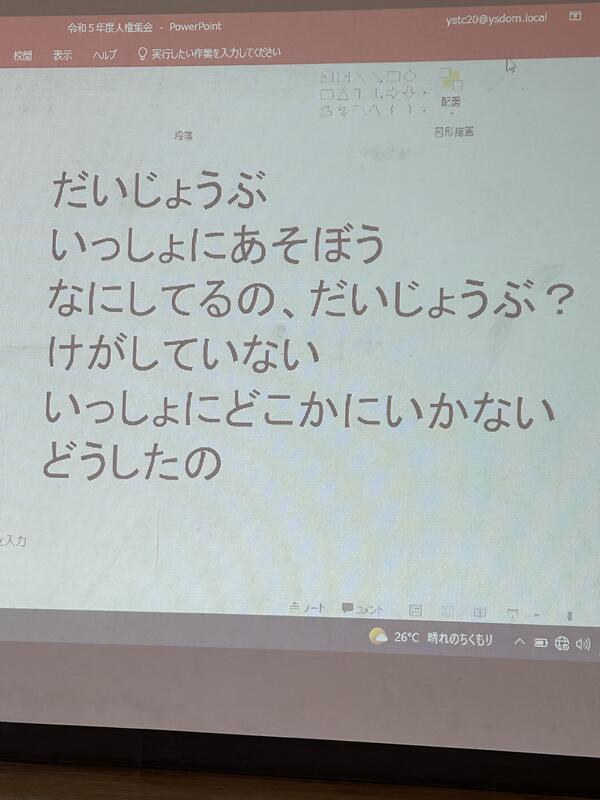 令和5年度人権集会 - PowerPoint
ystc20@ysdom.local
校閲 表示 ヘルプ 実行したい作業を入力してください
配置
段落
図形描画
だいじょうぶ
いっしょにあそぼう
なにしてるの、だいじょうぶ？
けがしていない
いっしょにどこかにいかない
どうしたの
を入力
ノート コメント
26°C 晴れのちくもり